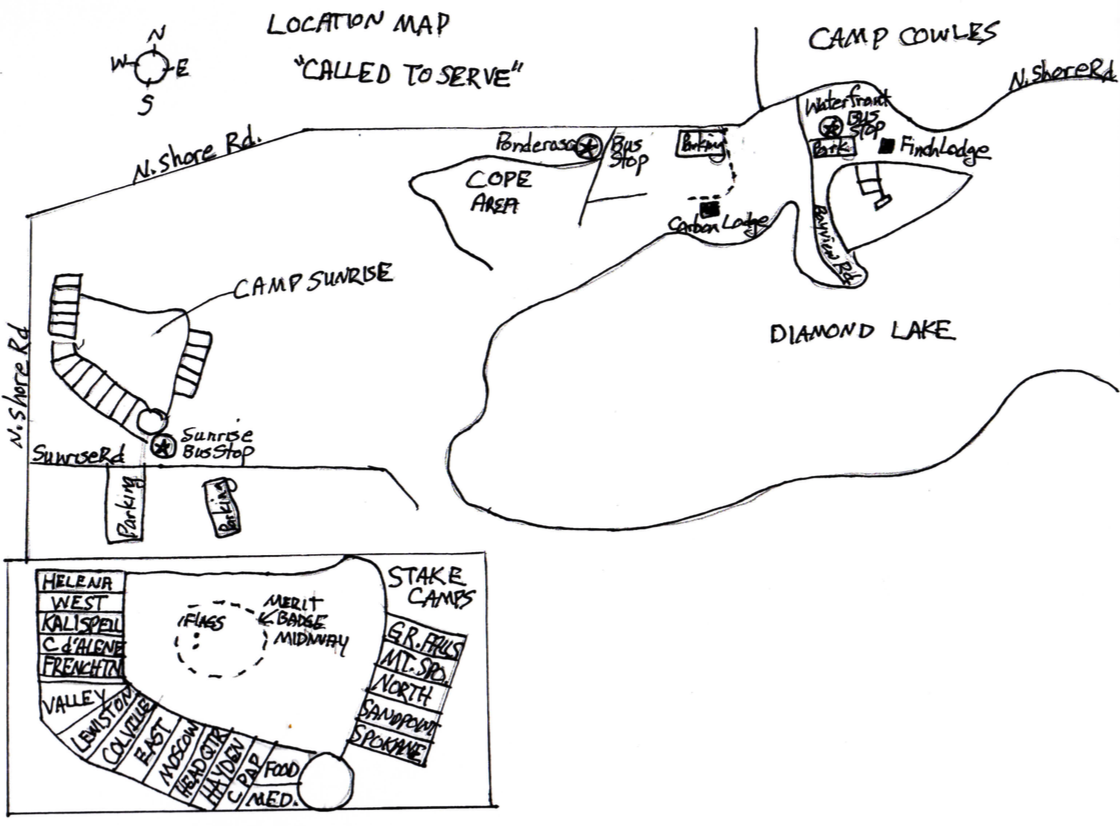 LOCATION MAP
"CALLED TO SERVE"
N
W
E
S
CAMP COWLES
N. Shore Rd.
N. Shore Rd.
Waterfront
Bus
Stop
Park
Finch Lodge
Ponderosa
Bus
Stop
Parking
COPE
AREA
Carbon Lodge
Bayview Rd.
CAMP SUNRISE
DIAMOND LAKE
N. Shore Rd
Sunrise
Bus Stop
Sunrise Rd
Parking
Parking
STAKE
CAMPS
HELENA
WEST
KALISPELL
C d'ALENE
FRENCHTN
VALLEY
LEWISTON
COLVILLE
EAST
MOSCOW
HEADQTR
HAYDEN
C PAP
FOOD
MED.
FLAGS
MERIT
BADGE
MIDWAY
G.R. FALLS
MT. SPO.
NORTH
SANDPOINT
SPOKANE